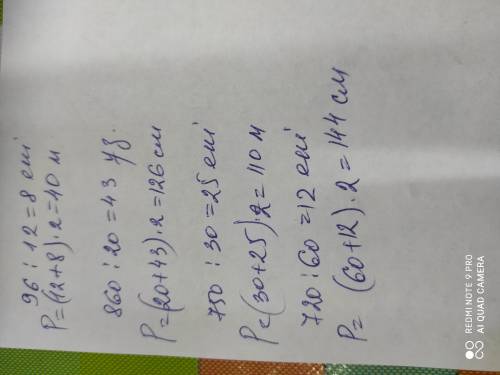 96 : 12 = 8 ені
P = (12+8) · 2 = 40 м
860 : 20 = 43 ұз.
P = (20+43) · 2 = 126 см
750 : 30 = 25 ені
P = (30+25) · 2 = 110 м
720 : 60 = 12 ені
P = (60+12) · 2 = 144 см
REDMI NOTE 9 PRO
AI QUAD CAMERA